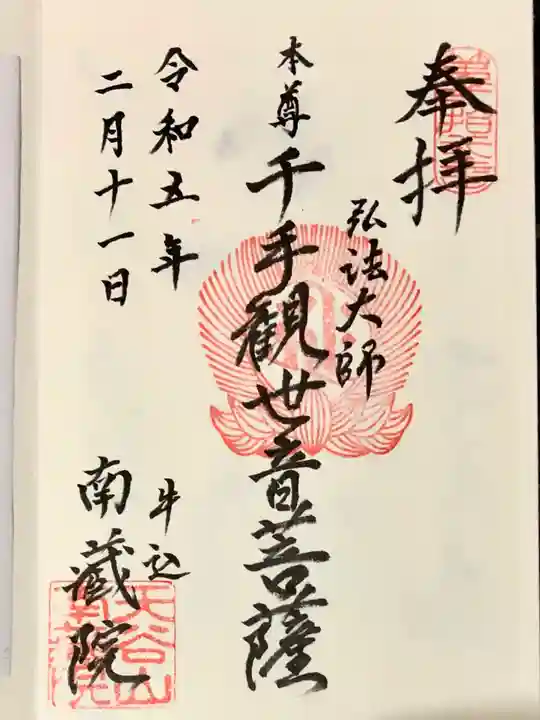 奉拝
弘法大師
本尊 千手観世音菩薩
令和五年
二月十一日
牛込
南蔵院
天谷山
南蔵院